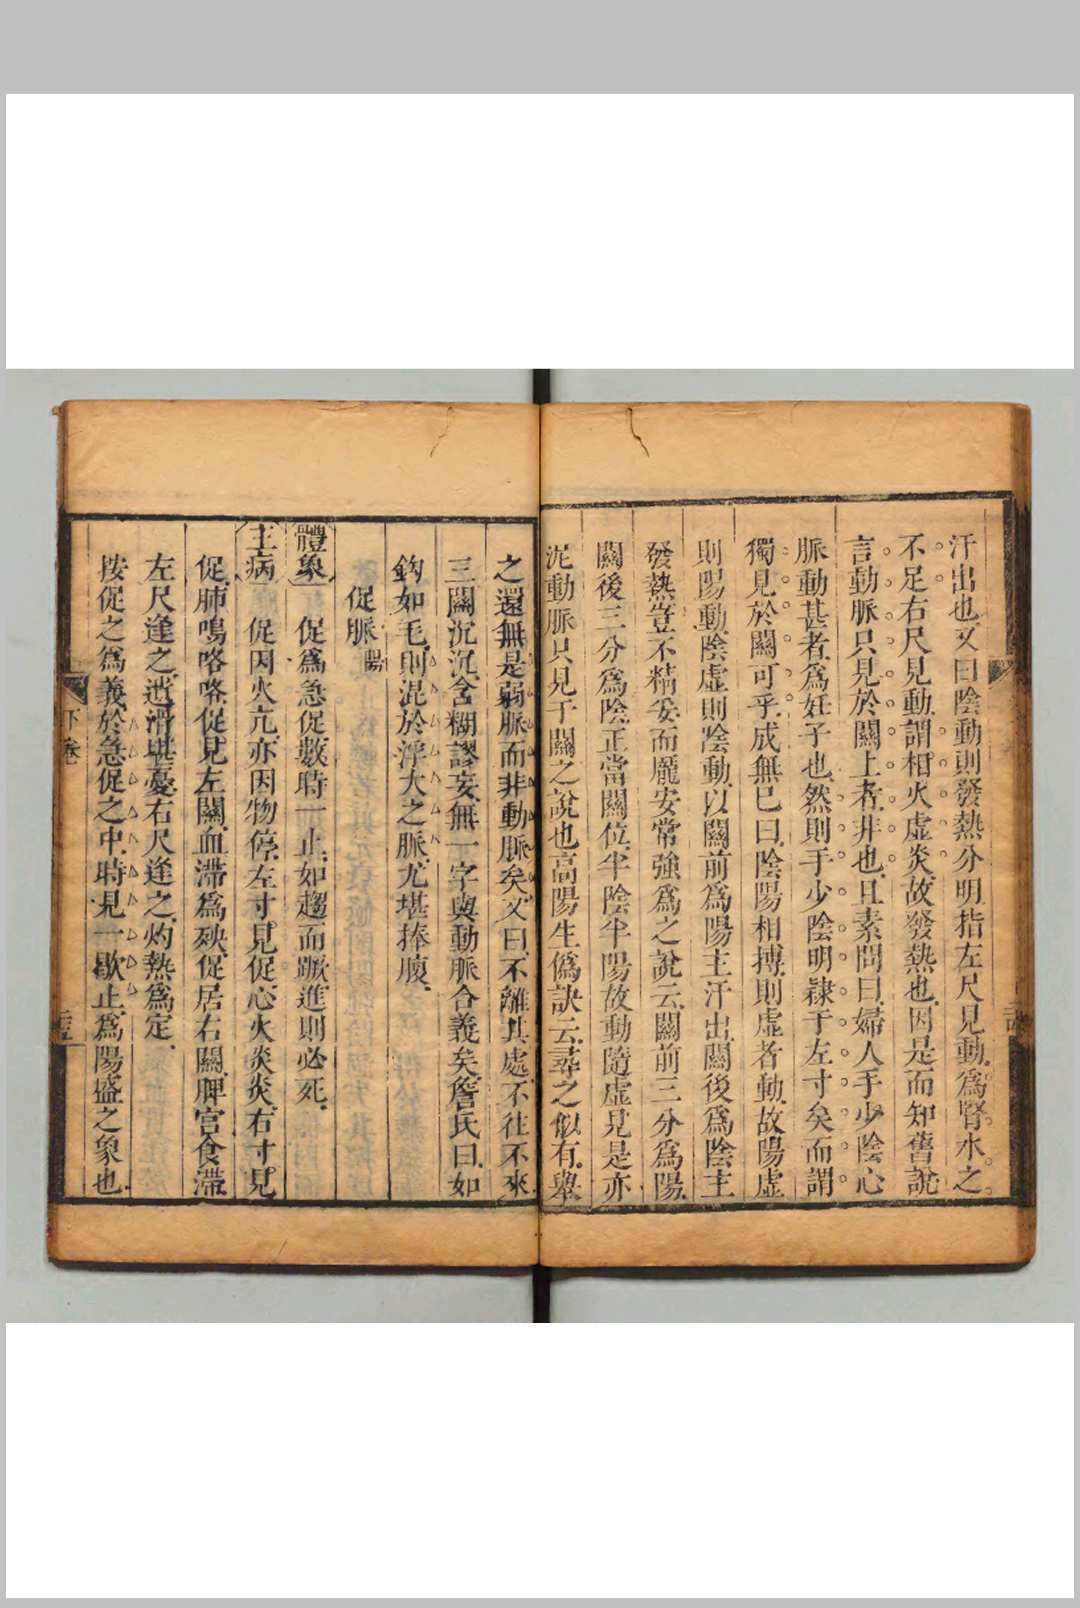 汗出也又曰陰動則發熱分明指左尺見動為腎水之
不足右尺見動謂相火虛炎故發熱也因是而知舊說
言動脈只見於關上者非也且素問曰婦人手少陰心
脈動甚者為妊子也然則手少陰明隸于左寸矣而謂
獨見於關可乎成無巳曰陰陽相搏則虛者動故陽虛
則陽動陰虛則陰動以關前為陽主汗出關後為陰主
發熱豈不精妥而龐安常強為之說云關前三分為陽
關後三分為陰正當關位半陰半陽故動隨虛見是亦
泥動脈只見于關之說也高陽生偽訣云尋之似有舉
之還無是弱脈而非動脈矣又曰不離其處不往不來
三關沉沉含糊謬妄無一字與動脈合義矣詹氏曰如
鈎如毛則混於浮大之脈尤堪捧腹
促脈陽
體象 促為急促數時一止如趨而蹶進則必死
主病 促因火亢亦因物停左寸見促心火炎炎右寸見
促肺鳴咯咯促見左關血滯為殃促居右關脾宮食滯
左尺逢之遺滑堪憂右尺逢之灼熱為定
按促之為義於急促之中時見一歇止為陽盛之象也
下卷